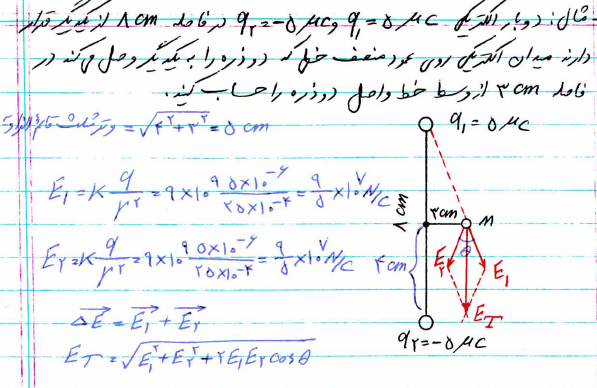 مثال: دوبار الکتریکی q₁=۵ μC و q₂=-۵ μC در فاصله ۸cm از یکدیگر قرار
دارند میدان الکتریکی روی عمود منصف خطی که دو ذره را به یکدیگر وصل می کند در
فاصله ۳cm از وسط خط واصل دو ذره را حساب کنید.
وتر مثلث قائم الزاویه = √۴²+۳² = ۵ cm
E₁=K q/r² = ۹×۱۰⁹ ۵×۱۰⁻⁶/۲۵×۱۰⁻⁴ = ۹/۵ ×۱۰⁷ N/C
E₂=K q/r² = ۹×۱۰⁹ ۵×۱۰⁻⁶/۲۵×۱۰⁻⁴ = ۹/۵ ×۱۰⁷ N/C
ΔE = E₁ + E₂
E_T = √E₁²+E₂²+۲E₁E₂cosθ
q₁=۵ μC
۸cm
۳cm
M
۴cm
θ
E₂
E₁
E_T
q₂=-۵ μC